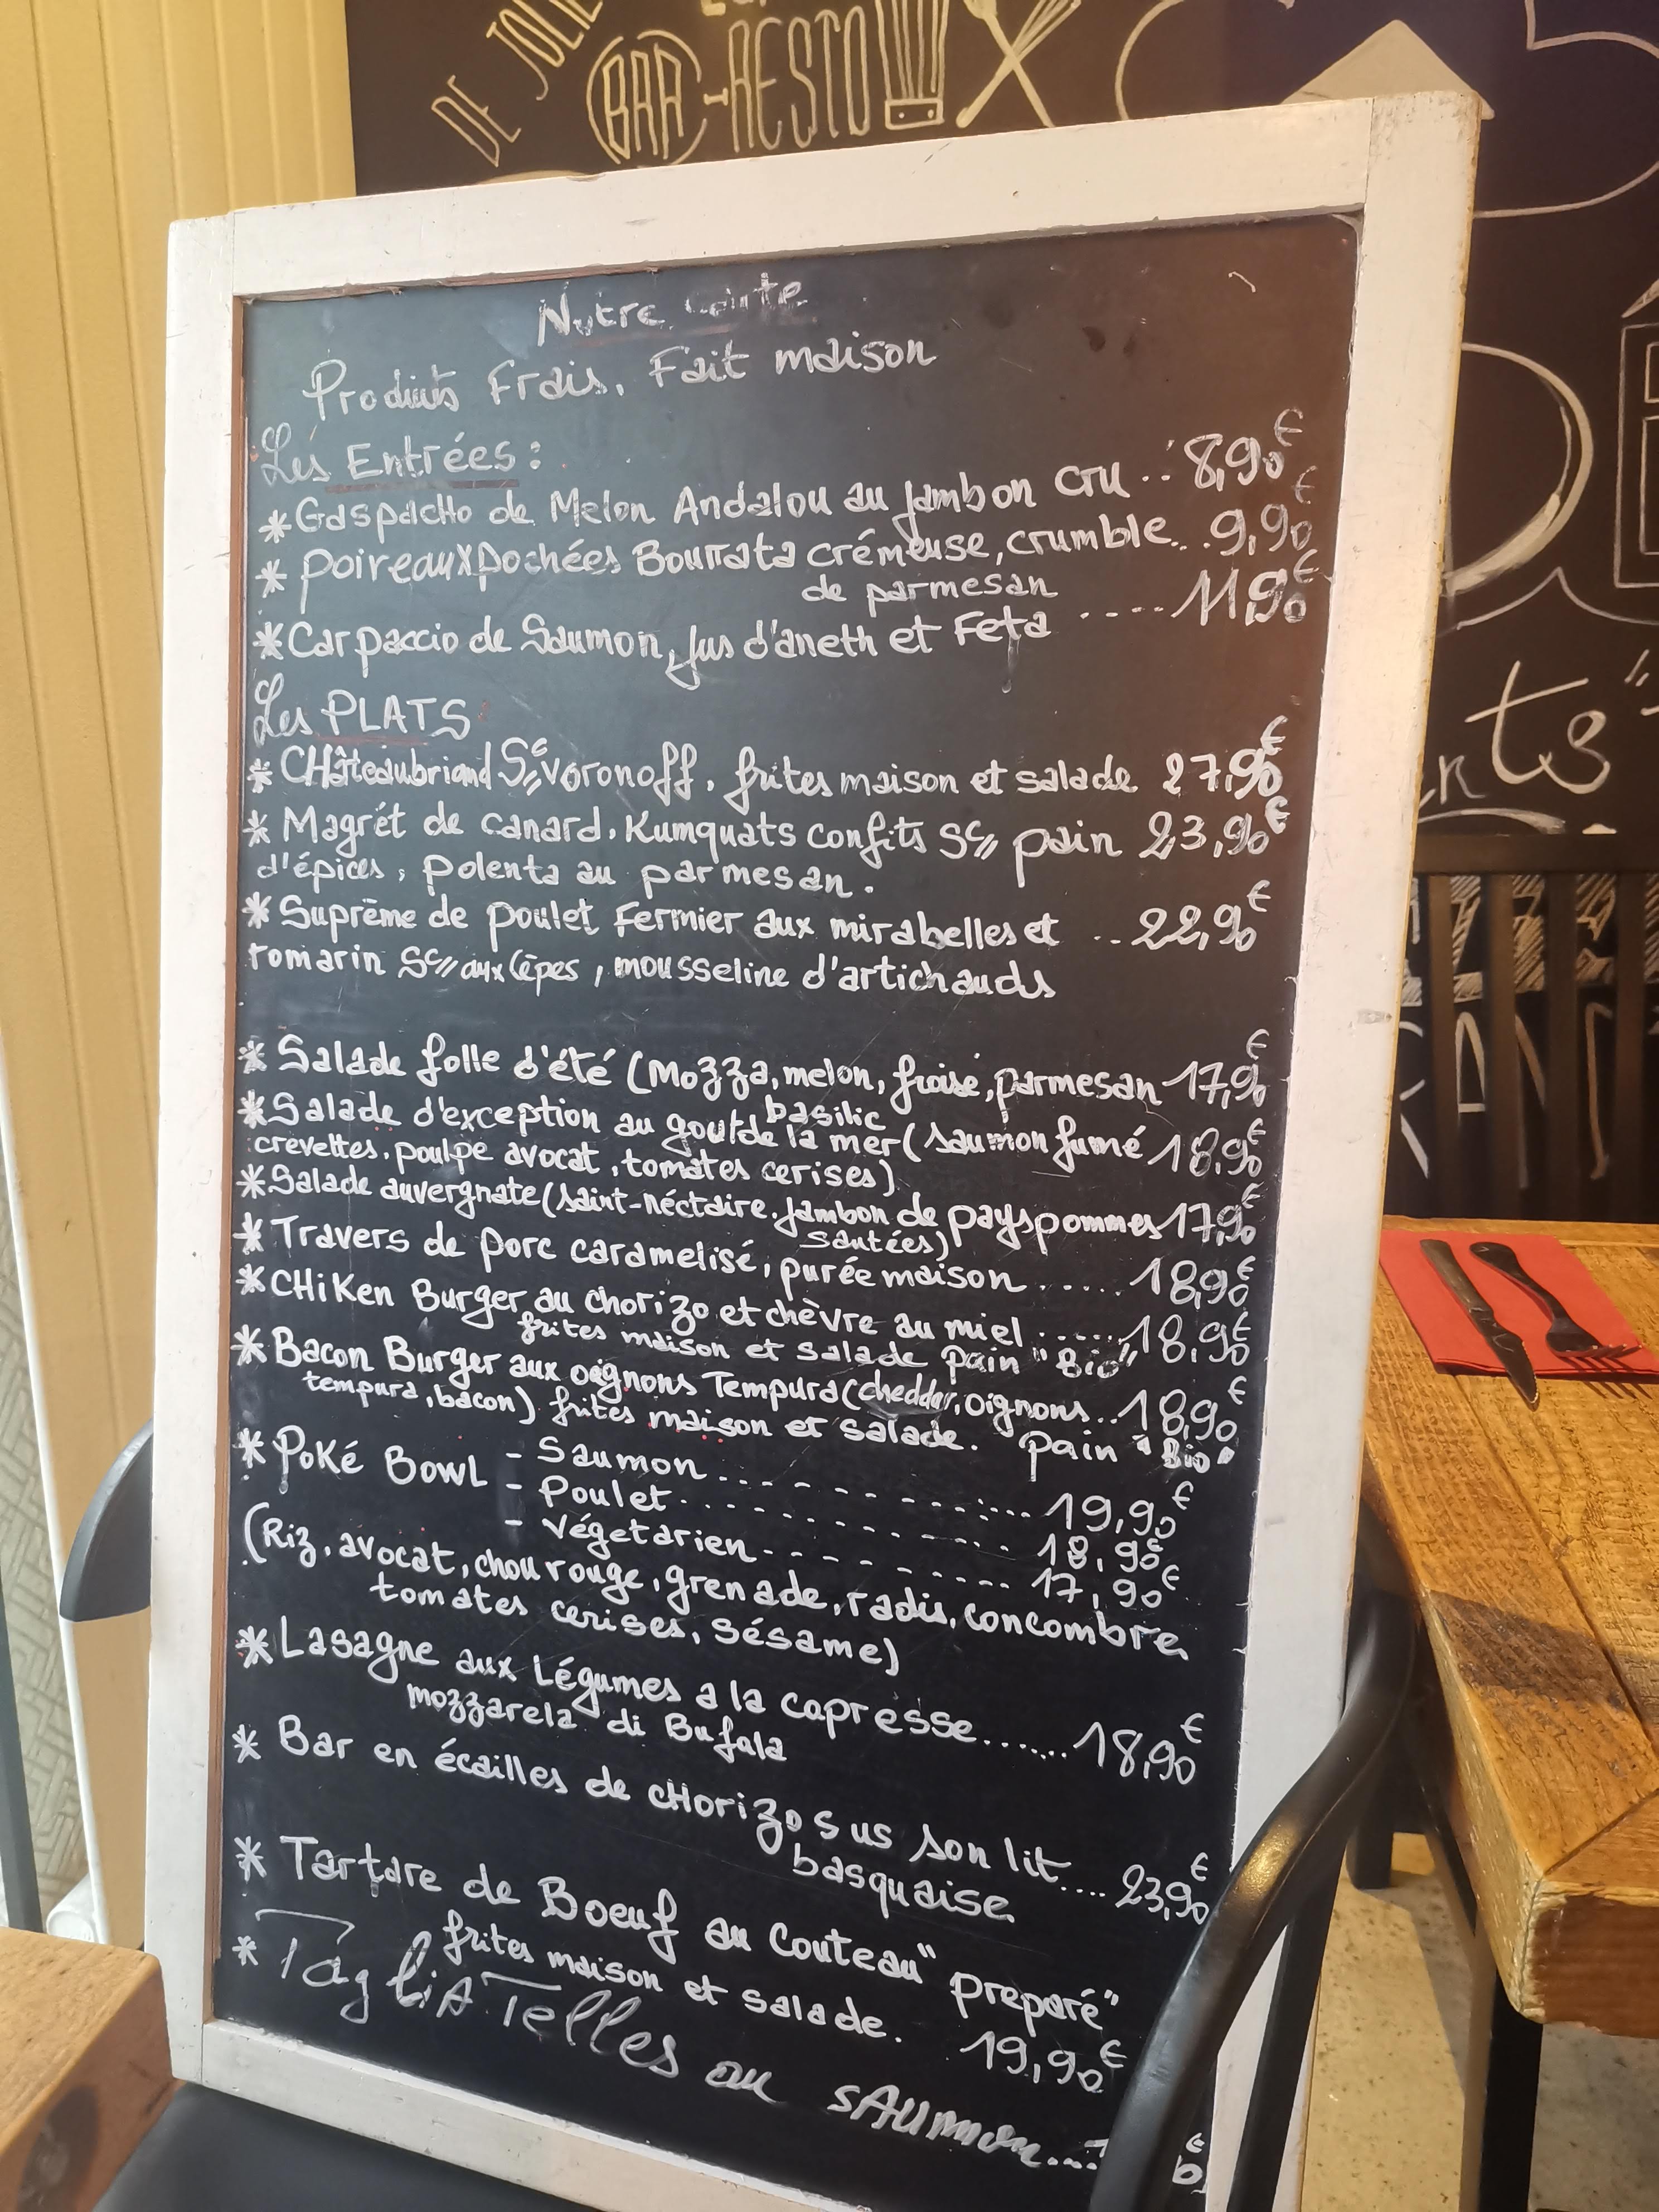 DE JOLIE
BAR-RESTO
Notre carte
Produits Frais, Fait maison
Les Entrées :
* Gaspacho de Melon Andalou au Jambon cru ..: 8,90€
* Poireaux pochées Bourrata crémeuse, crumble... 9,90€
de parmesan
* Carpaccio de Saumon, Jus d'aneth et Feta .... 11,90€
Les PLATS
* CHâteaubriand Sce Voronoff, frites maison et salade 27,90€
* Magrét de canard, Kumquats confits Sce pain 23,90€
d'épices, polenta au parmesan.
* Suprême de poulet Fermier aux mirabelles et .. 22,90€
romarin Sce aux Cèpes, mousseline d'artichauds
* Salade folle d'été (Mozza, melon, fraise, parmesan 17,90€
basilic
* Salade d'exception au gout de la mer (saumon fumé 18,90€
crevettes, poulpe avocat, tomates cerises)
* Salade auvergnate (saint-néctaire, Jambon de pays pommes 17,90€
sautées)
* Travers de porc caramelisé, purée maison ..... 18,90€
* CHiKen Burger au chorizo et chèvre au miel ...... 18,90€
frites maison et salade pain "Bio"
* Bacon Burger aux oignons Tempura (cheddar, oignons.. 18,90€
tempura, bacon) frites maison et salade. pain "Bio"
* Poké BowL - Saumon ............ 19,90€
- Poulet ............ 18,90€
- végetarien ............ 17,90€
(Riz, avocat, chou rouge, grenade, radis, concombre
tomates cerises, sésame)
* Lasagne aux Légumes a la capresse ....... 18,90€
mozzarela di Bufala
* Bar en écailles de cHorizo sus son lit .... 23,90€
basquaise
* Tartare de Boeuf au Couteau "preparé"
frites maison et salade. 19,90€
* TagliATelles au sAumon....